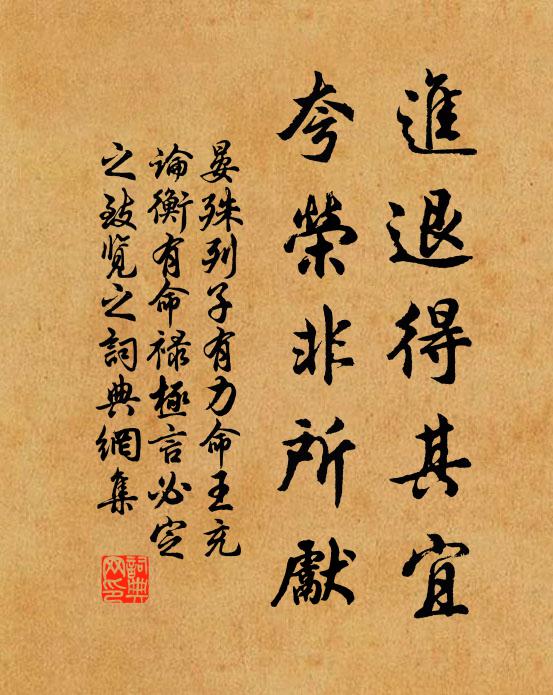 進退得其宜
夸榮非所獻
晏殊列子有力命王充
論衡有命禄極言必定
之致览之詞典網集
詞典网印